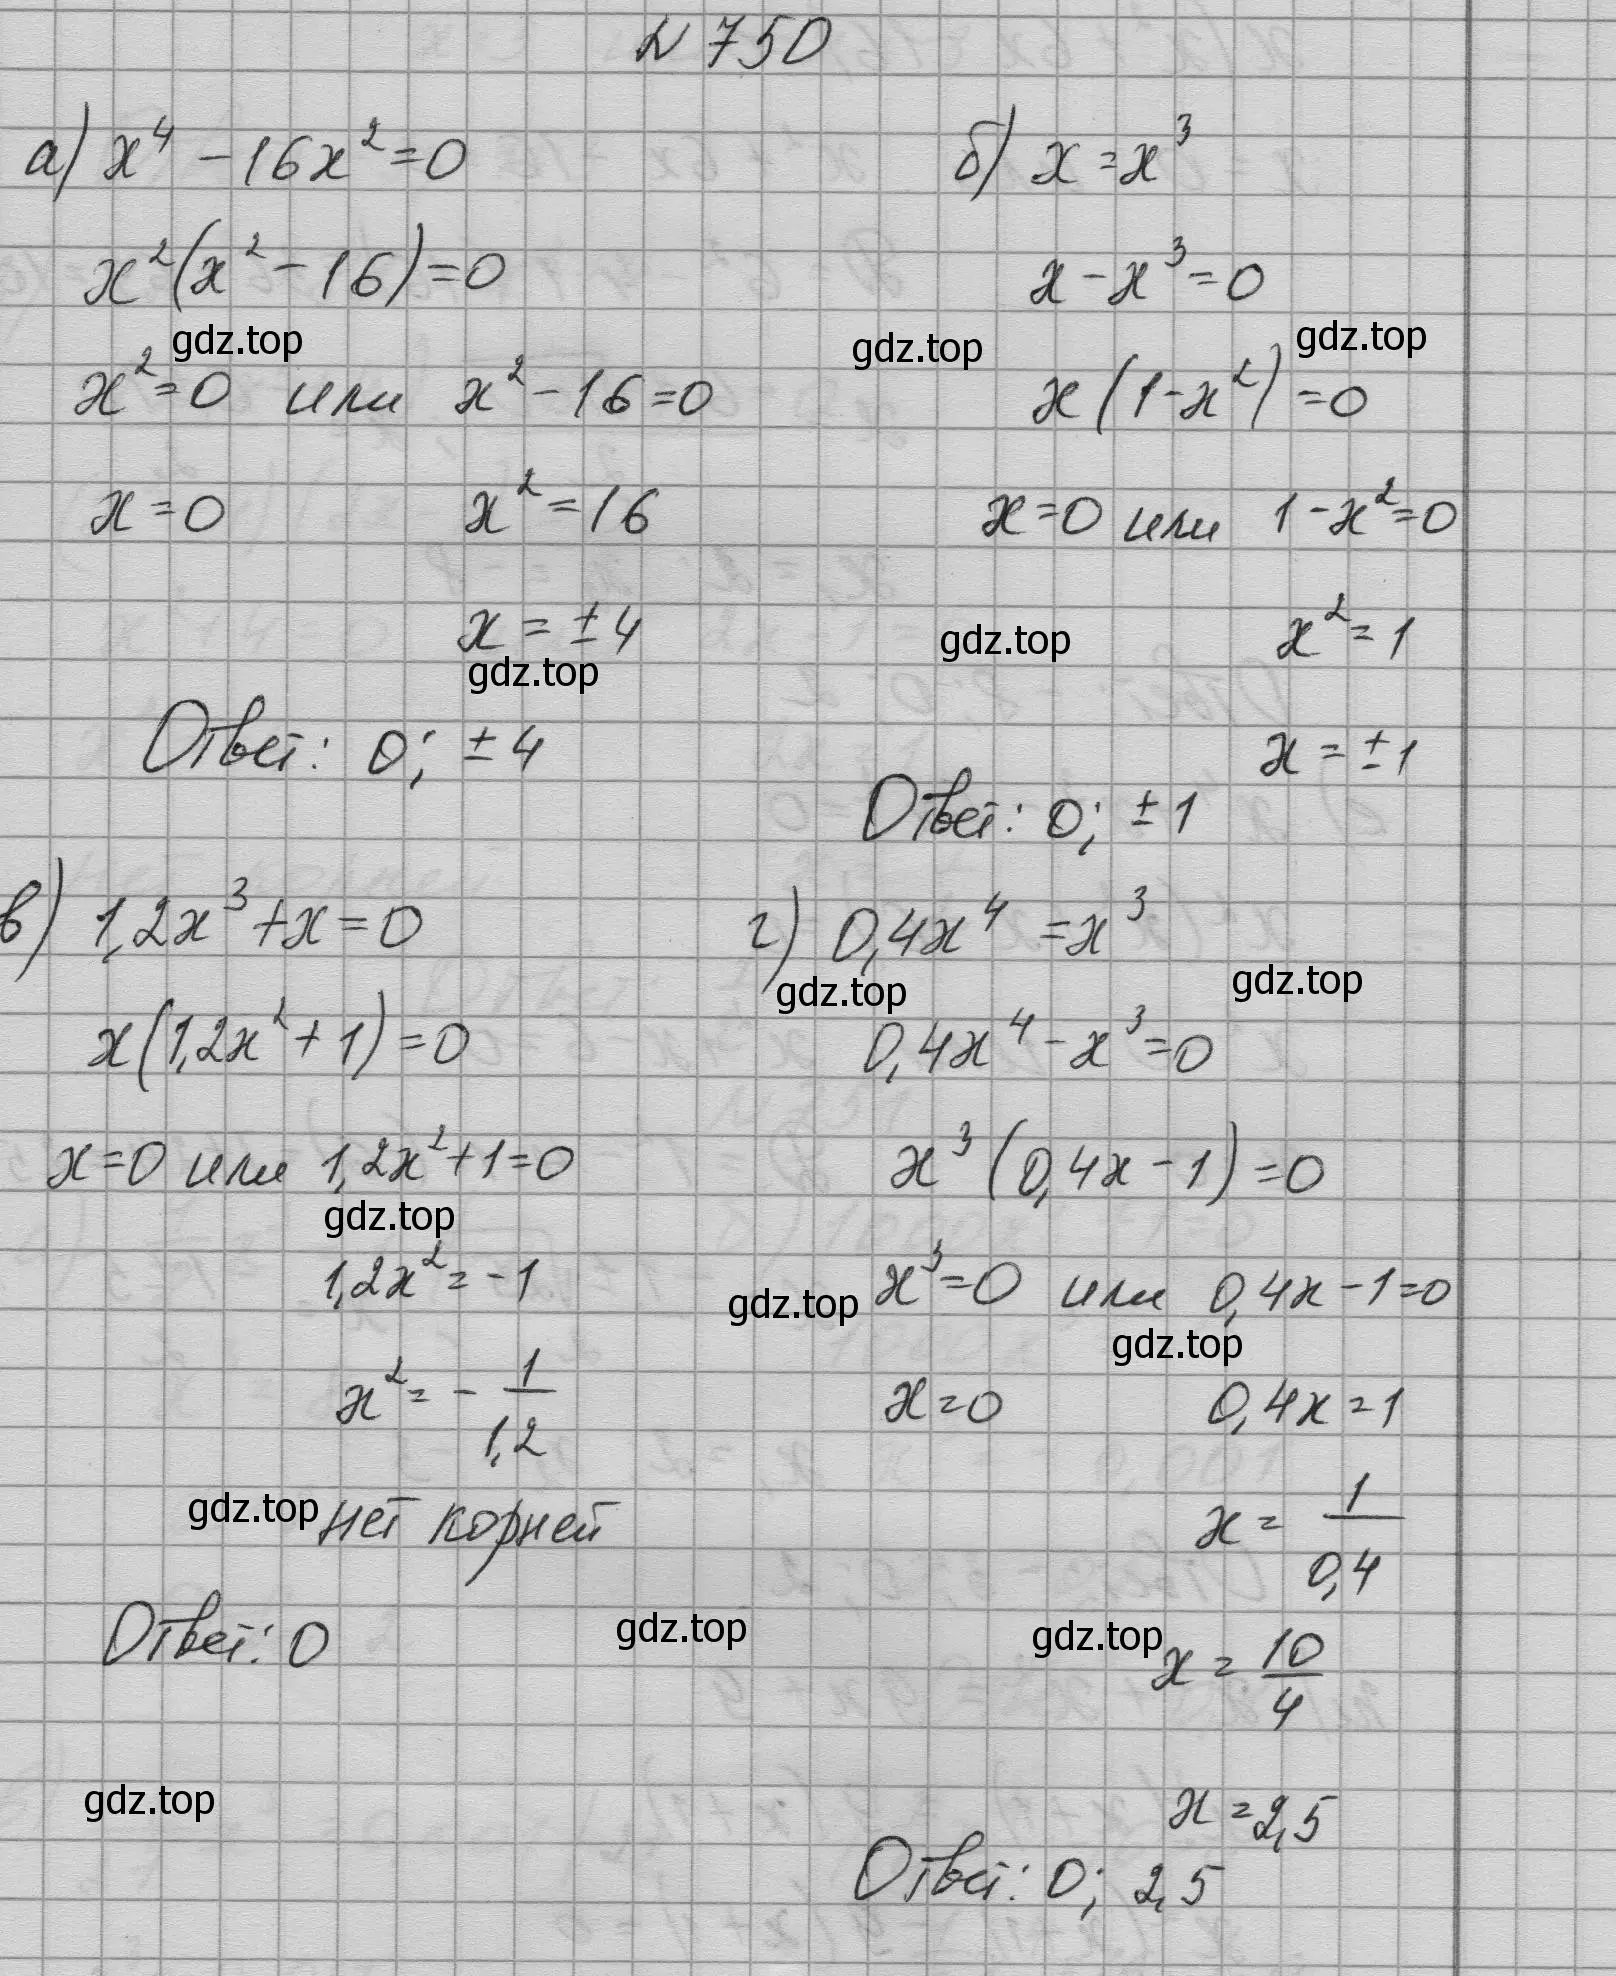 № 750
а) x⁴ - 16x² = 0
x²(x² - 16) = 0
gdz.top
x² = 0 или x² - 16 = 0
x = 0 x² = 16
x = ± 4
gdz.top
Ответ: 0; ± 4
б) x = x³
x - x³ = 0
gdz.top gdz.top
x(1 - x²) = 0
x = 0 или 1 - x² = 0
gdz.top x² = 1
x = ± 1
Ответ: 0; ± 1
в) 1,2x³ + x = 0
x(1,2x² + 1) = 0
x = 0 или 1,2x² + 1 = 0
gdz.top
1,2x² = -1
x² = - 1/1,2
gdz.top нет корней
Ответ: 0
gdz.top
gdz.top
г) 0,4x⁴ = x³
gdz.top gdz.top
0,4x⁴ - x³ = 0
x³(0,4x - 1) = 0
gdz.top x³ = 0 или 0,4x - 1 = 0
gdz.top
x = 0 0,4x = 1
x = 1/0,4
gdz.top
x = 10/4
x = 2,5
Ответ: 0; 2,5